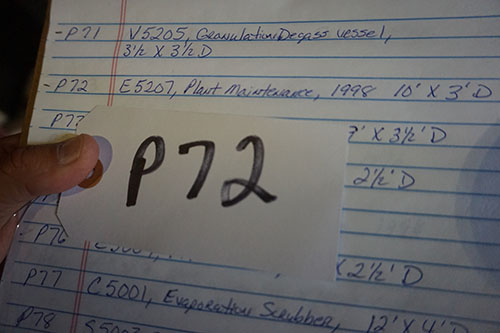 -P71 V5205, Granulation Degass vessel,
3½ X 3½ D
-P72 E5207, Plant Maintenance, 1998 10' X 3' D
P73 7' X 3½' D
P72
2½' D
P76 C5001,
X 2½' D
P77 C5001, Evaporation Scrubber,
P78 12' X 4' D